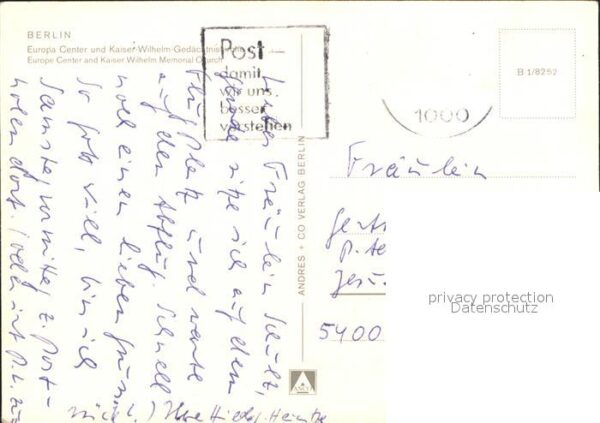 BERLIN
Europa Center und Kaiser-Wilhelm-Gedächtniskirche
Europe Center and Kaiser Wilhelm Memorial Church
Post-
damit
wir uns
besser
verstehen
1000
B 1/8252
ANDRES + CO VERLAG BERLIN
ANCO
Liebes Fräulein Schulz,
heute sitze ich auf dem
Flugplatz und warte
auf den Abflug. Schnell
noch einen lieben Gruß.
So Gott will, bin ich
Samstagvormittag z. Post-
holen dort. (oder
Fräulein
5400
privacy protection
Datenschutz